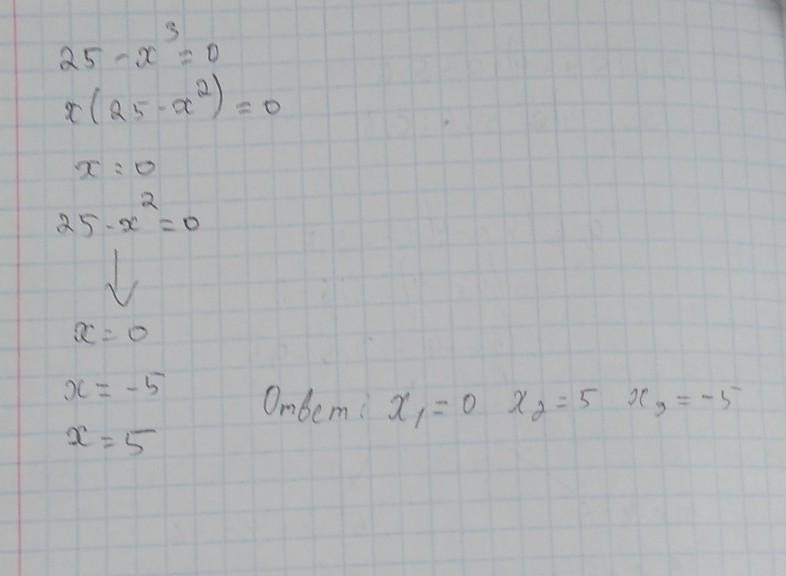 25 - x³ = 0
x(25 - x²) = 0
x = 0
25 - x² = 0
↓
x = 0
x = -5
x = 5
Ответ: x₁ = 0 x₂ = 5 x₃ = -5